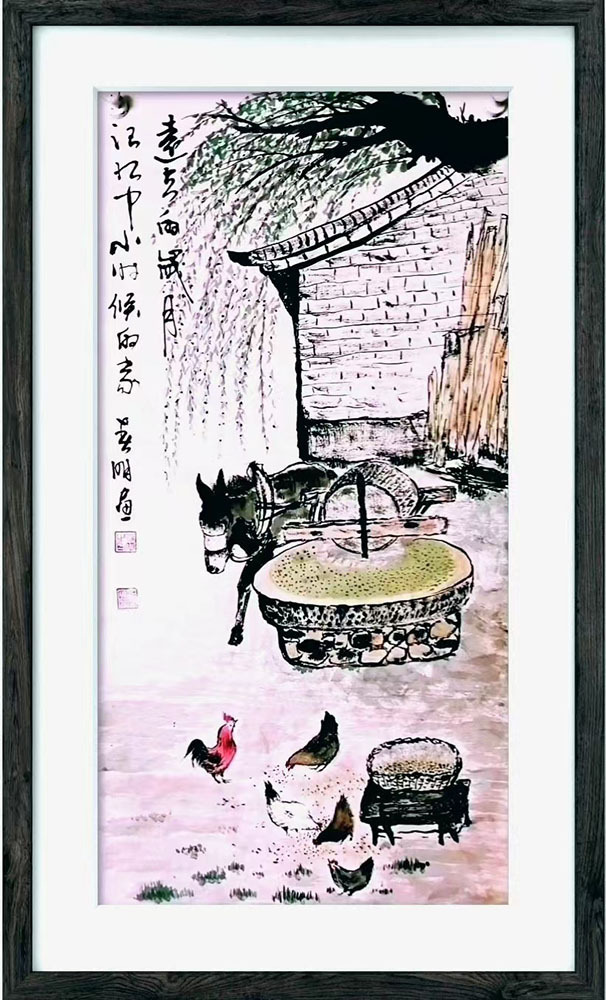 遠去的歲月
记忆中小时候的家
吴明画